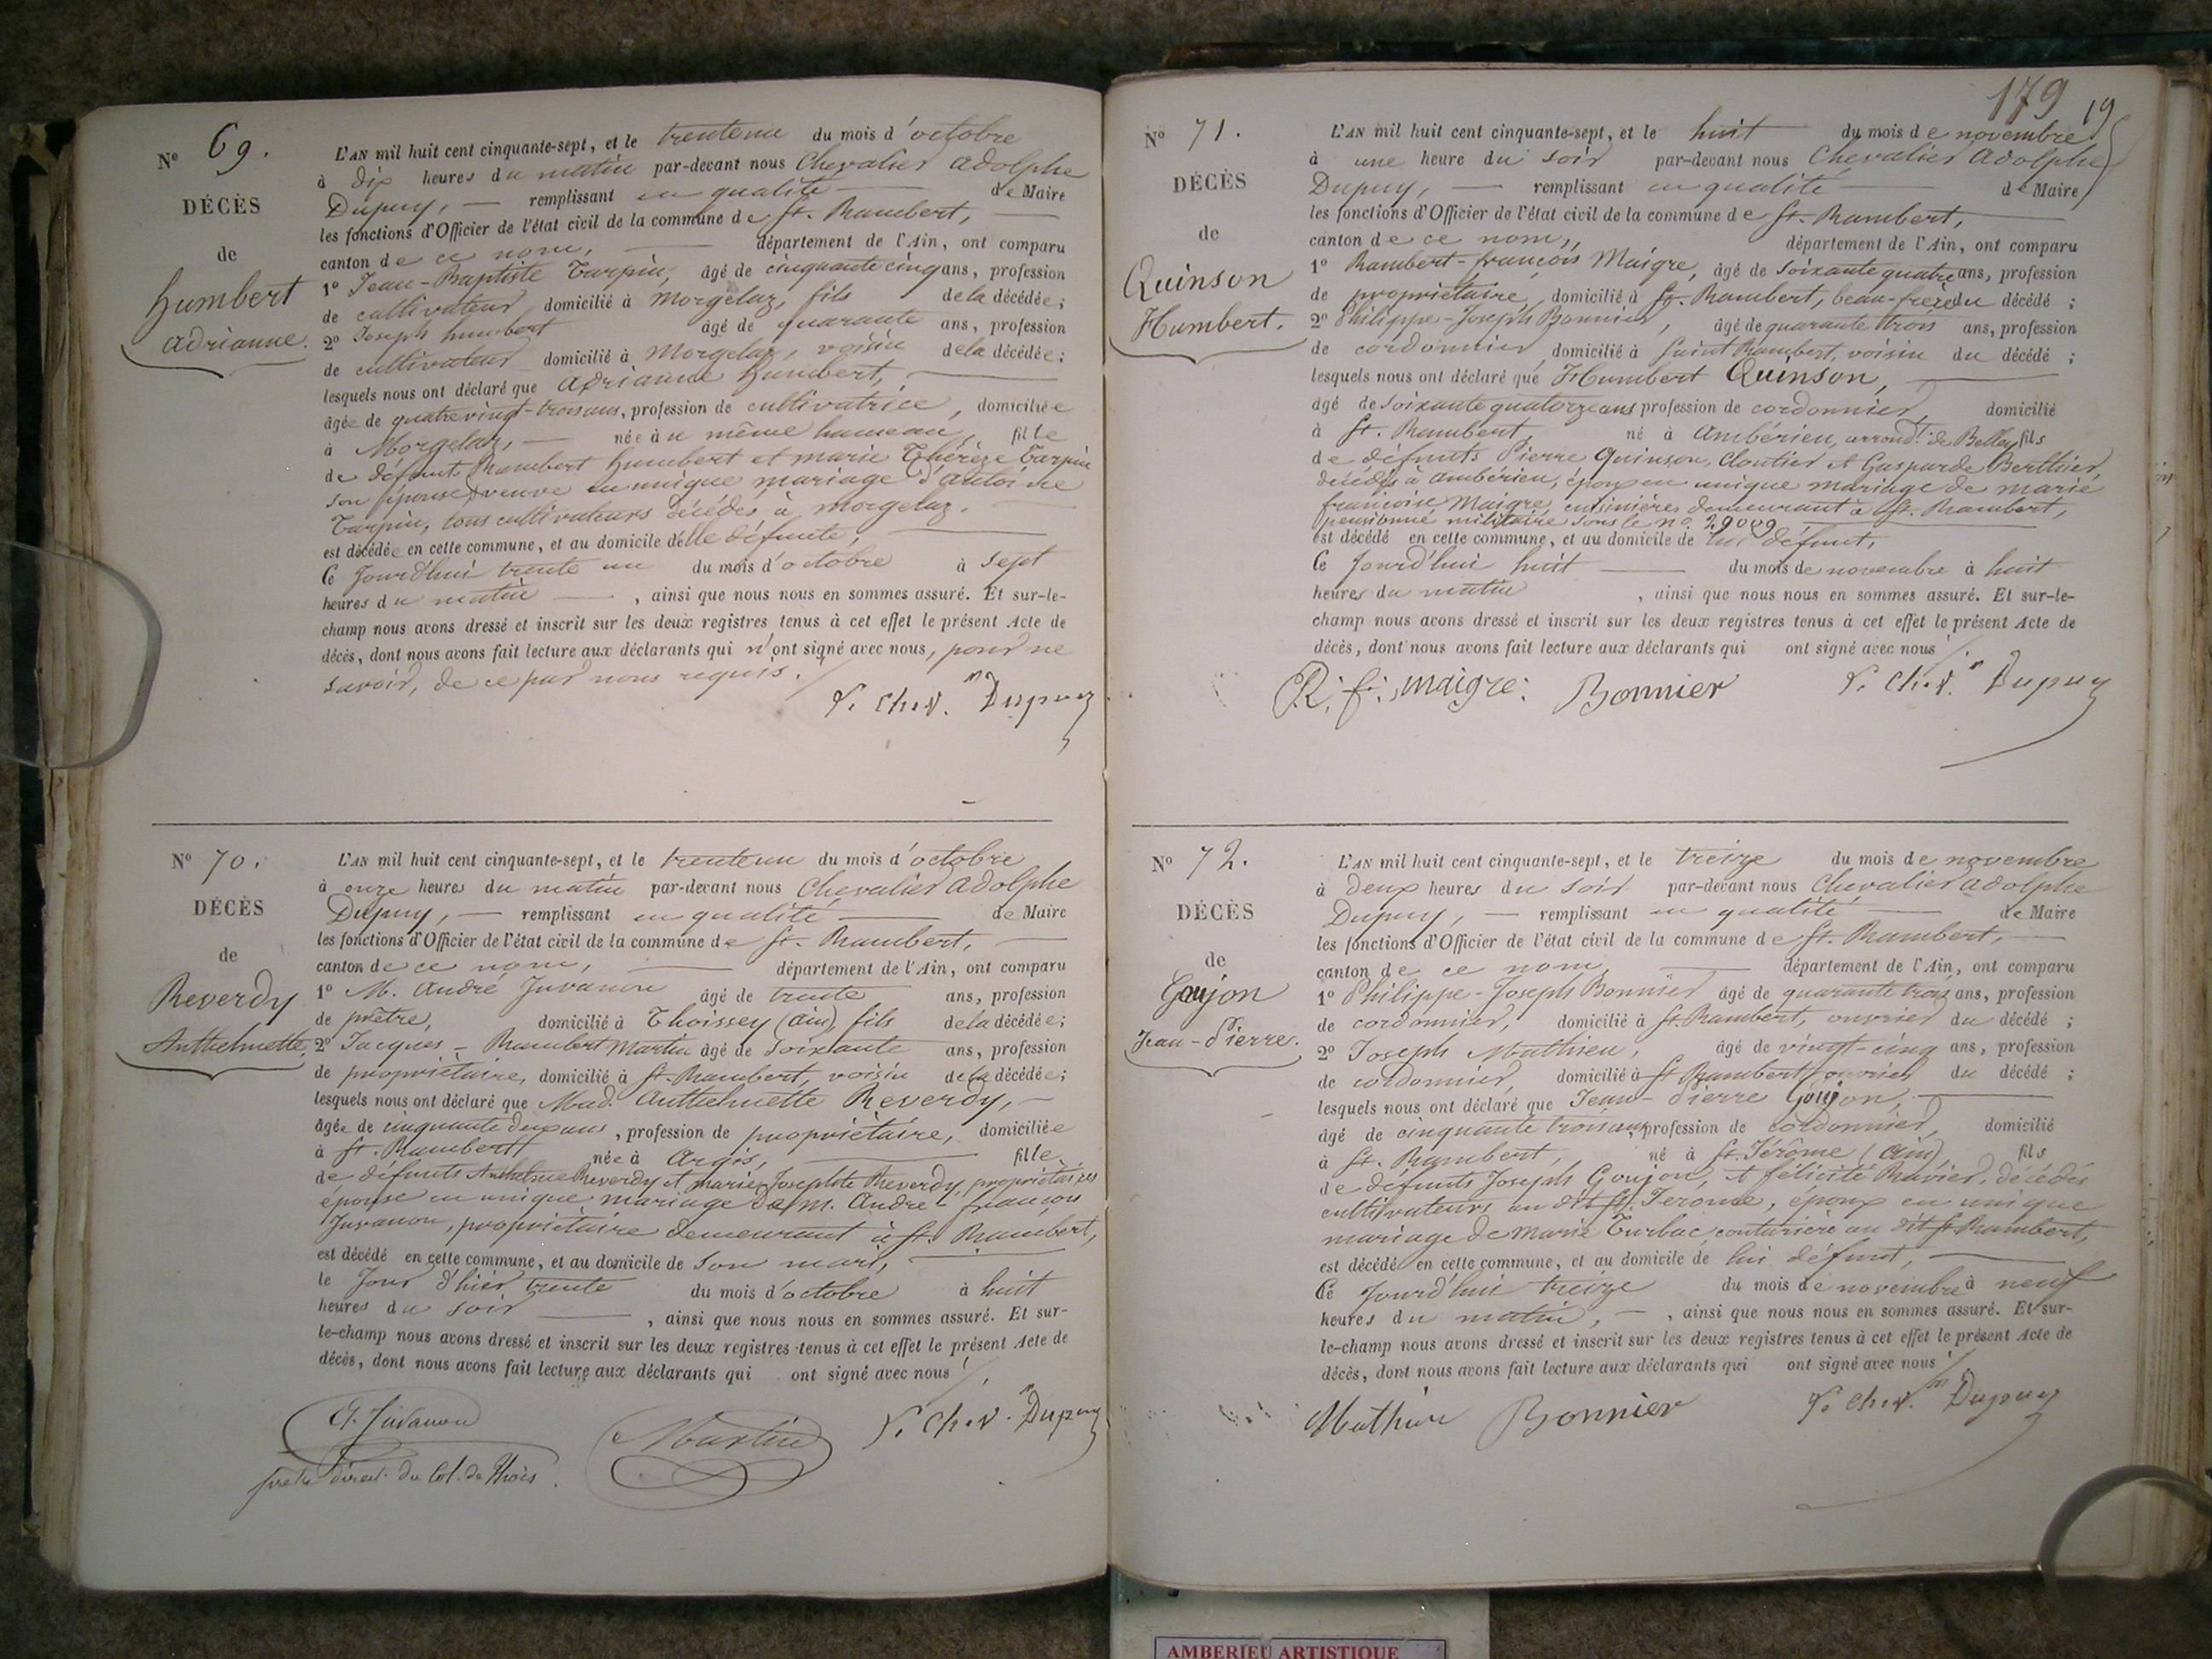 N° 69.
DÉCÈS
de
Humbert
Adrianne.
L'AN mil huit cent cinquante-sept, et le trenteun du mois d'octobre
à dix heures du matin par-devant nous Chevalier Adolphe
Dupuy, — remplissant en qualité — de Maire
les fonctions d'Officier de l'état civil de la commune de St. Rambert, —
canton de ce nom, — département de l'Ain, ont comparu
1° Jean-Baptiste Turpin, âgé de cinquante cinq ans, profession
de cultivateur domicilié à Morgelaz, fils de la décédée;
2° Joseph humbert âgé de quarante ans, profession
de cultivateur domicilié à Morgelaz, voisin de la décédée;
lesquels nous ont déclaré que Adrianne Humbert, —
âgée de quatrevingt-trois ans, profession de cultivatrice, domiciliée
à Morgelaz, — née à u même hameau, fille
de défunts Rambert humbert et marie Thérèze Carpin
son épouse, veuve en unique mariage d'Antoine
Turpin, tous cultivateurs décédés à Morgelaz. —
est décédée en cette commune, et au domicile d'elle défunte, —
Ce Jourd'hui trente un du mois d'octobre à sept
heures du matin — , ainsi que nous nous en sommes assuré. Et sur-le-
champ nous avons dressé et inscrit sur les deux registres tenus à cet effet le présent Acte de
décès, dont nous avons fait lecture aux déclarants qui n'ont signé avec nous, pour ne
savoir, de ce par nous requis.
Chev. Dupuy
N° 70.
DÉCÈS
de
Reverdy
Anthelmette.
L'AN mil huit cent cinquante-sept, et le trenteun du mois d'octobre
à onze heures du matin par-devant nous Chevalier Adolphe
Dupuy, — remplissant en qualité — de Maire
les fonctions d'Officier de l'état civil de la commune de St. Rambert, —
canton de ce nom, — département de l'Ain, ont comparu
1° M. André Juvanon âgé de trente ans, profession
de prêtre, domicilié à Thoissey (ain), fils de la décédée;
2° Jacques-Rambert Martin âgé de soixante ans, profession
de propriétaire, domicilié à St. Rambert, voisin de la décédée;
lesquels nous ont déclaré que Mad. Anthelmette Reverdy, —
âgée de cinquante deux ans, profession de propriétaire, domiciliée
à St. Rambert, née à Argis, — fille
de défunts Anthelme Reverdy et marie-Josephte Reverdy, propriétaires
épouse en unique mariage de m. André-françois
Juvanon, propriétaire demeurant à St. Rambert,
est décédé en cette commune, et au domicile de son mari, —
le Jour d'hier trente du mois d'octobre à huit
heures du soir — , ainsi que nous nous en sommes assuré. Et sur-
le-champ nous avons dressé et inscrit sur les deux registres tenus à cet effet le présent Acte de
décès, dont nous avons fait lecture aux déclarants qui ont signé avec nous
A. Juvanon Martin Chev. Dupuy
direct. du Col. de Thois.
179 19
N° 71.
DÉCÈS
de
Quinson
Humbert.
L'AN mil huit cent cinquante-sept, et le huit du mois de novembre
à une heure du soir par-devant nous Chevalier Adolphe
Dupuy, — remplissant en qualité — de Maire
les fonctions d'Officier de l'état civil de la commune de St. Rambert, —
canton de ce nom, département de l'Ain, ont comparu
1° Rambert-françois Maigre, âgé de soixante quatre ans, profession
de propriétaire domicilié à St. Rambert, beau-frère du décédé;
2° Philippe-Joseph Bonnier, âgé de quarante trois ans, profession
de cordonnier domicilié à Saint Rambert, voisin du décédé;
lesquels nous ont déclaré que Humbert Quinson, —
âgé de soixante quatorze ans profession de cordonnier, domicilié
à St. Rambert né à Ambérieu, arrondt. de Belley fils
de défunts Pierre Quinson, Cloutier et Gasparde Berthier,
décédés à Ambérieu, époux en unique mariage de marie
françoise Maigre, cuisinière demeurant à St. Rambert,
pensionné militaire sous le n°. 29009 —
est décédé en cette commune, et au domicile de lui défunt,
Ce Jourd'hui huit — du mois de novembre à huit
heures du matin , ainsi que nous nous en sommes assuré. Et sur-le-
champ nous avons dressé et inscrit sur les deux registres tenus à cet effet le présent Acte de
décès, dont nous avons fait lecture aux déclarants qui ont signé avec nous
R. f. Maigre. Bonnier Chev. Dupuy
N° 72.
DÉCÈS
de
Goujon
Jean-Pierre.
L'AN mil huit cent cinquante-sept, et le treize du mois de novembre
à deux heures du soir par-devant nous Chevalier Adolphe
Dupuy, — remplissant en qualité — de Maire
les fonctions d'Officier de l'état civil de la commune de St. Rambert, —
canton de ce nom — département de l'Ain, ont comparu
1° Philippe-Joseph Bonnier âgé de quarante trois ans, profession
de cordonnier, domicilié à St. Rambert, ouvrier du décédé;
2° Joseph Mathieu, âgé de vingt-cinq ans, profession
de cordonnier, domicilié à St Rambert, ouvrier du décédé;
lesquels nous ont déclaré que Jean-Pierre Goujon, —
âgé de cinquante trois ans, profession de cordonnier, domicilié
à St. Rambert, né à St. Jérôme (ain), fils
de défunts Joseph Goujon, et félicité Ravier, décédés
cultivateurs au dit St. Jerome, époux en unique
mariage de Marie Turbac, couturière au dit St Rambert,
est décédé en cette commune, et au domicile de lui défunt, —
Ce Jourd'hui treize du mois de novembre à neuf
heures du matin, — , ainsi que nous nous en sommes assuré. Et sur-
le-champ nous avons dressé et inscrit sur les deux registres tenus à cet effet le présent Acte de
décès, dont nous avons fait lecture aux déclarants qui ont signé avec nous
Mathieu Bonnier Chev. Dupuy
AMBERIEU ARTISTIQUE